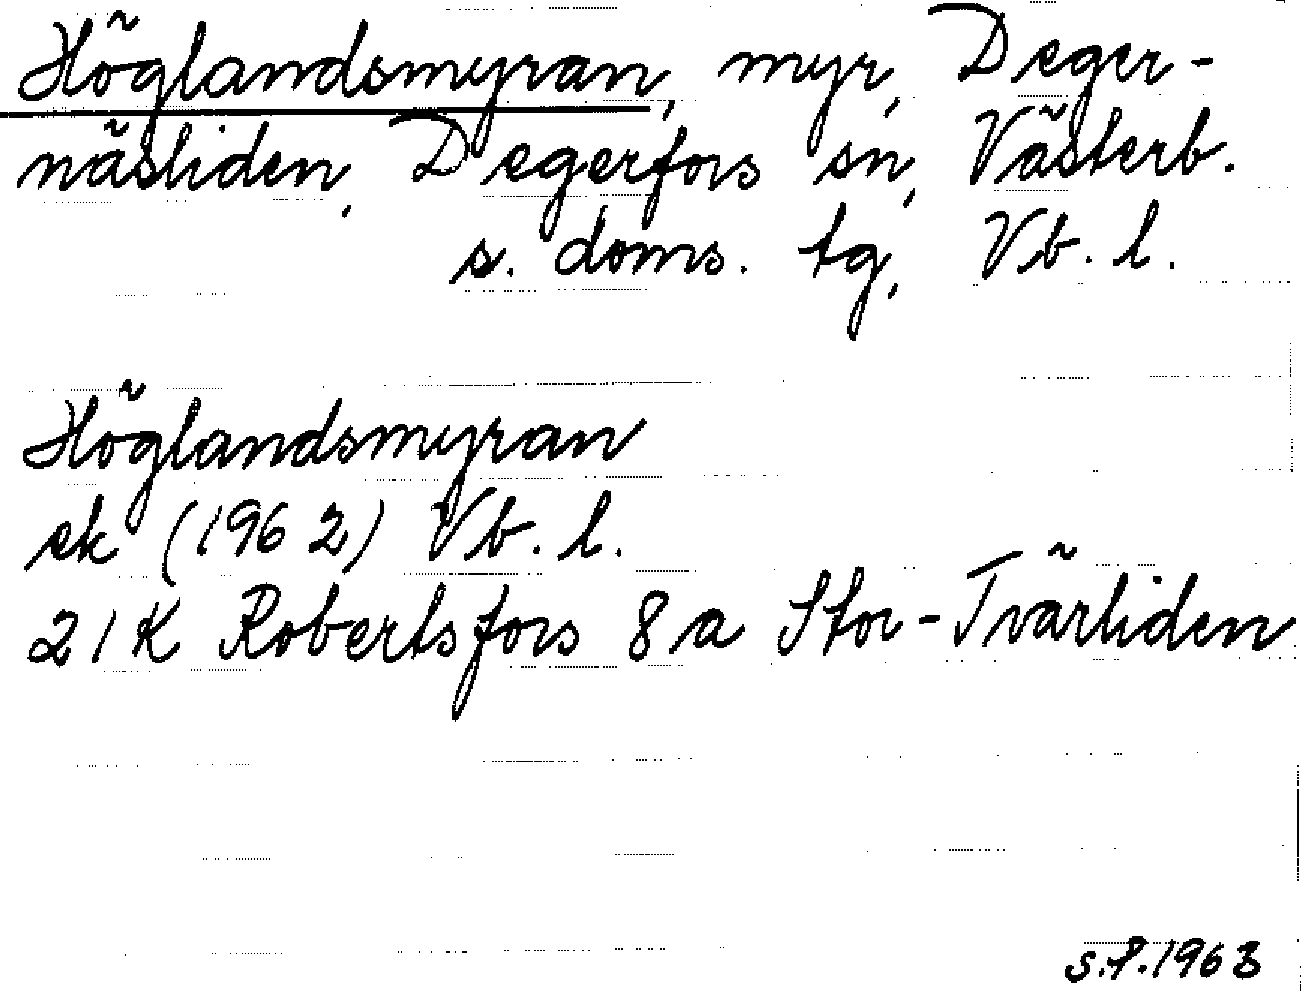 Höglandsmyran, myr, Deger-
näsliden, Degerfors sn, Västerb.
s. doms. tg, Vb. l.
Höglandsmyran
ek (1962) Vb. l.
21K Robertsfors 8a Stor-Tvärliden
S.P. 1963